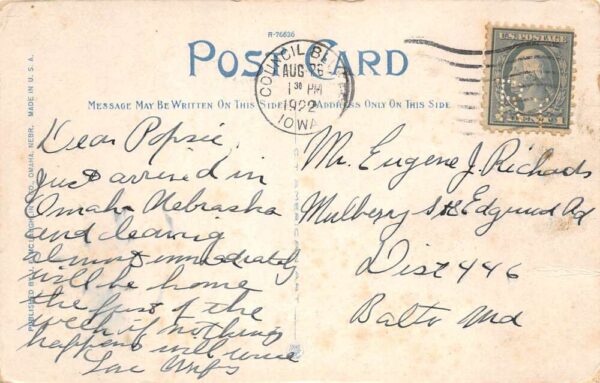 R-76636
POST CARD
COUNCIL BLUFFS
AUG 26
1 30 PM
1922
IOWA
U.S. POSTAGE
1 CENT 1
MESSAGE MAY BE WRITTEN ON THIS SIDE
ADDRESS ONLY ON THIS SIDE
MADE IN U.S.A.
OMAHA, NEBR.
PUBLISHED BY
Dear Popsie,
Just arrived in
Omaha Nebraska
and leaving
almost immediately
will be home
the first of the
week if nothing
happens will wire
Love
Mr. Eugene J. Richards
Mulberry St & Edgewood Rd
Dist 446
Balto Md